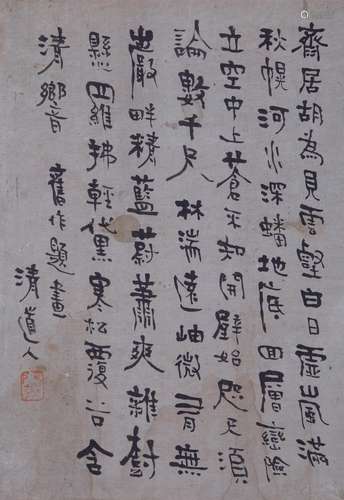 齋居胡為見雲壑白日虛嵐滿
秋幌河水深蟠地底回層巒隂
立空中上蒼不知開闢始咫尺須
論數千尺林湍遠岫微有無
岩嚴畔積藍蔚蕭爽雜樹
懸四羅拂輕黛寒松覆谷含
清鄉音舊作題畫
清道人